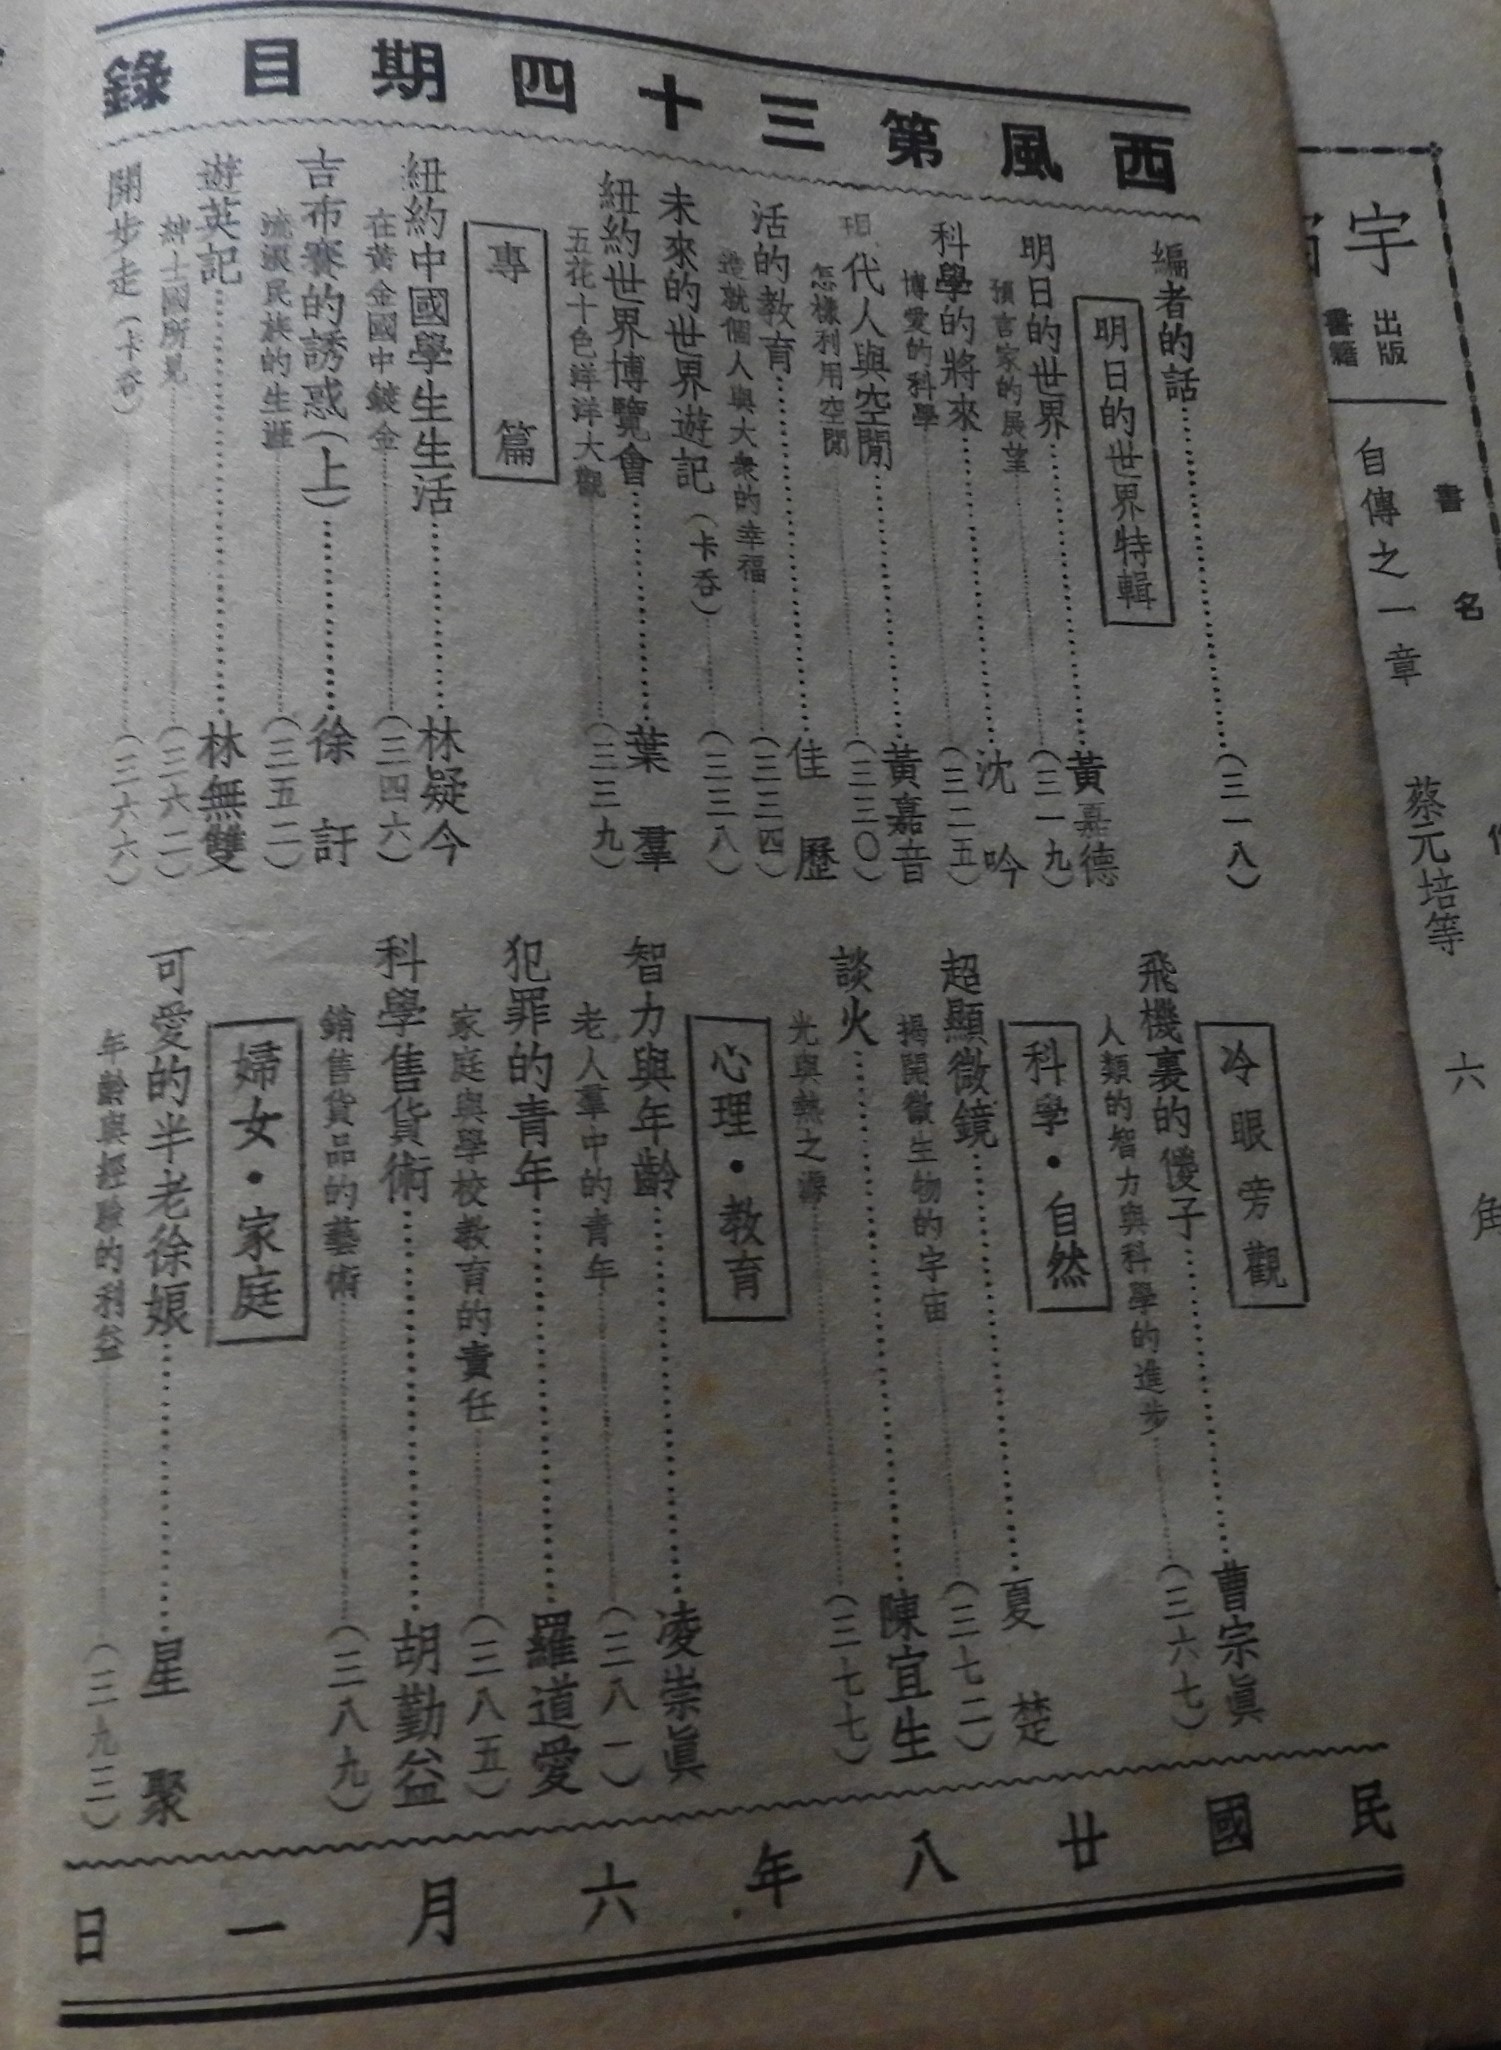 西風第三十四期目錄
編者的話……(三一八)
明日的世界特輯
明日的世界……黃嘉德
預言家的展望……(三一九)
科學的將來……沈吟
博愛的科學……(三二五)
現代人與空閒……黃嘉音
怎樣利用空閒……(三三〇)
活的教育……佳歷
造就個人與大衆的幸福……(三三四)
未來的世界遊記(卡吞)……(三三八)
紐約世界博覽會……葉羣
五花十色洋洋大觀……(三三九)
專篇
紐約中國學生生活……林疑今
在黃金國中鍍金……(三四六)
吉布賽的誘惑(上)……徐訏
流浪民族的生涯……(三五二)
遊英記……林無雙
紳士國所見……(三六二)
開步走(卡吞)……(三六六)
冷眼旁觀
飛機裏的優子……曹宗眞
人類的智力與科學的進步……(三六七)
科學·自然
超顯微鏡……夏楚
揭開微生物的宇宙……(三七二)
談火……陳宜生
光與熱之源……(三七七)
心理·教育
智力與年齡……凌崇眞
老人羣中的青年……(三八一)
犯罪的青年……羅道愛
家庭與學校教育的責任……(三八五)
科學售貨術……胡勤益
銷售貨品的藝術……(三八九)
婦女·家庭
可愛的半老徐娘……星聚
年齡與經驗的利益……(三九二)
民國廿八年六月一日
宇
出版
書籍
書名
自傳之一章
蔡元培等
六角